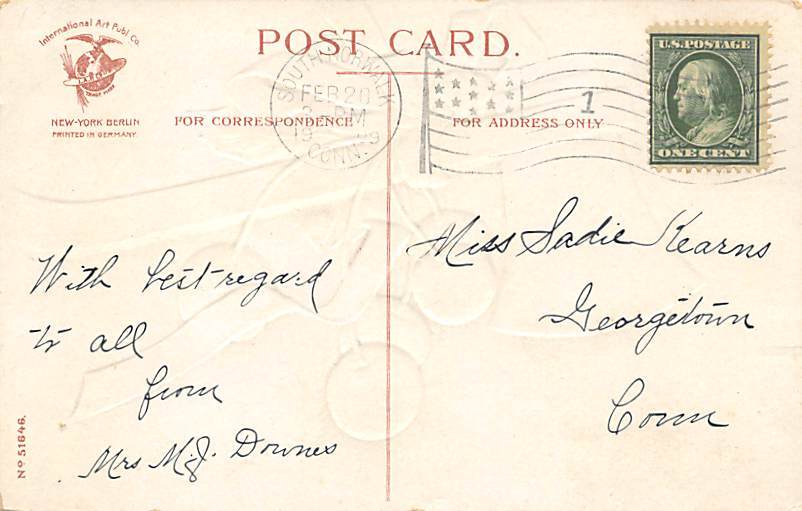 International Art Publ. Co.
TRADE MARK
NEW-YORK BERLIN
PRINTED IN GERMANY.
POST CARD.
FOR CORRESPONDENCE
FOR ADDRESS ONLY
SOUTH NORWALK
FEB 20
PM
19 9
CONN.
1
U.S. POSTAGE
ONE CENT
With best regard
to all
from
Mrs M.J. Downes
Miss Sadie Kearns
Georgetown
Conn
No 51646.